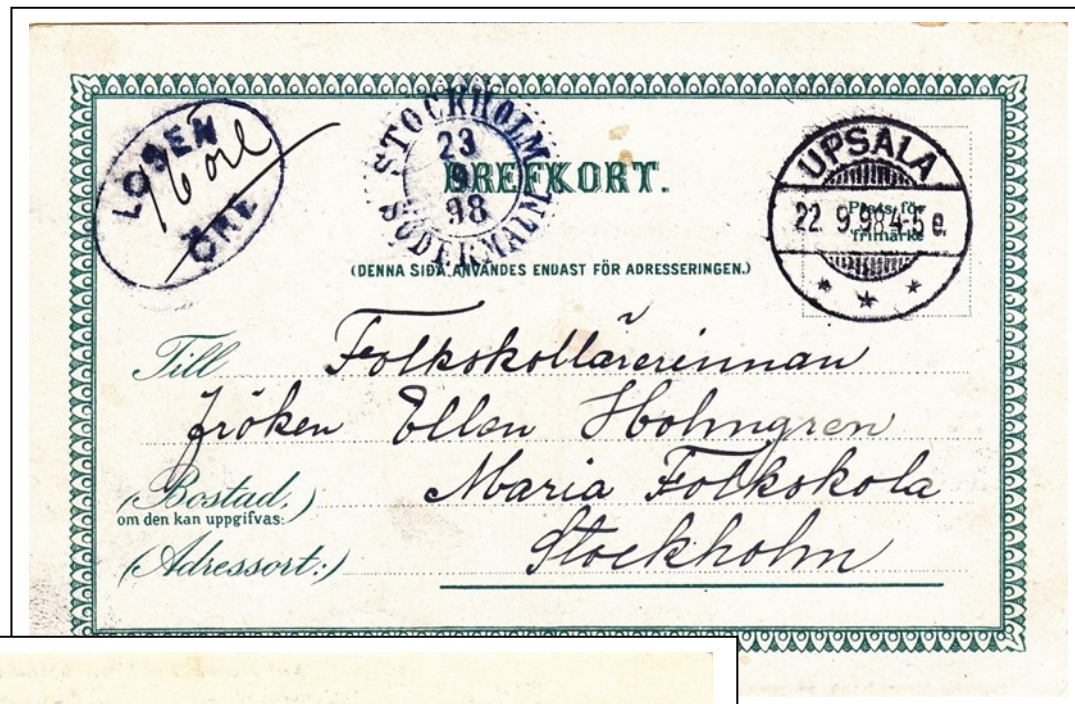 LOSEN
ÖRE
STOCKHOLM
23
9
98
SÖDERMALM
BREFKORT.
UPSALA
22. 9.98 4-5 e.
Plats för
frimärke
(DENNA SIDA ANVÄNDES ENDAST FÖR ADRESSERINGEN.)
Till Folkskollärerinnan
Fröken Ellen Holmgren
(Bostad,) Maria Folkskola
om den kan uppgifvas:
(Adressort:) Stockholm